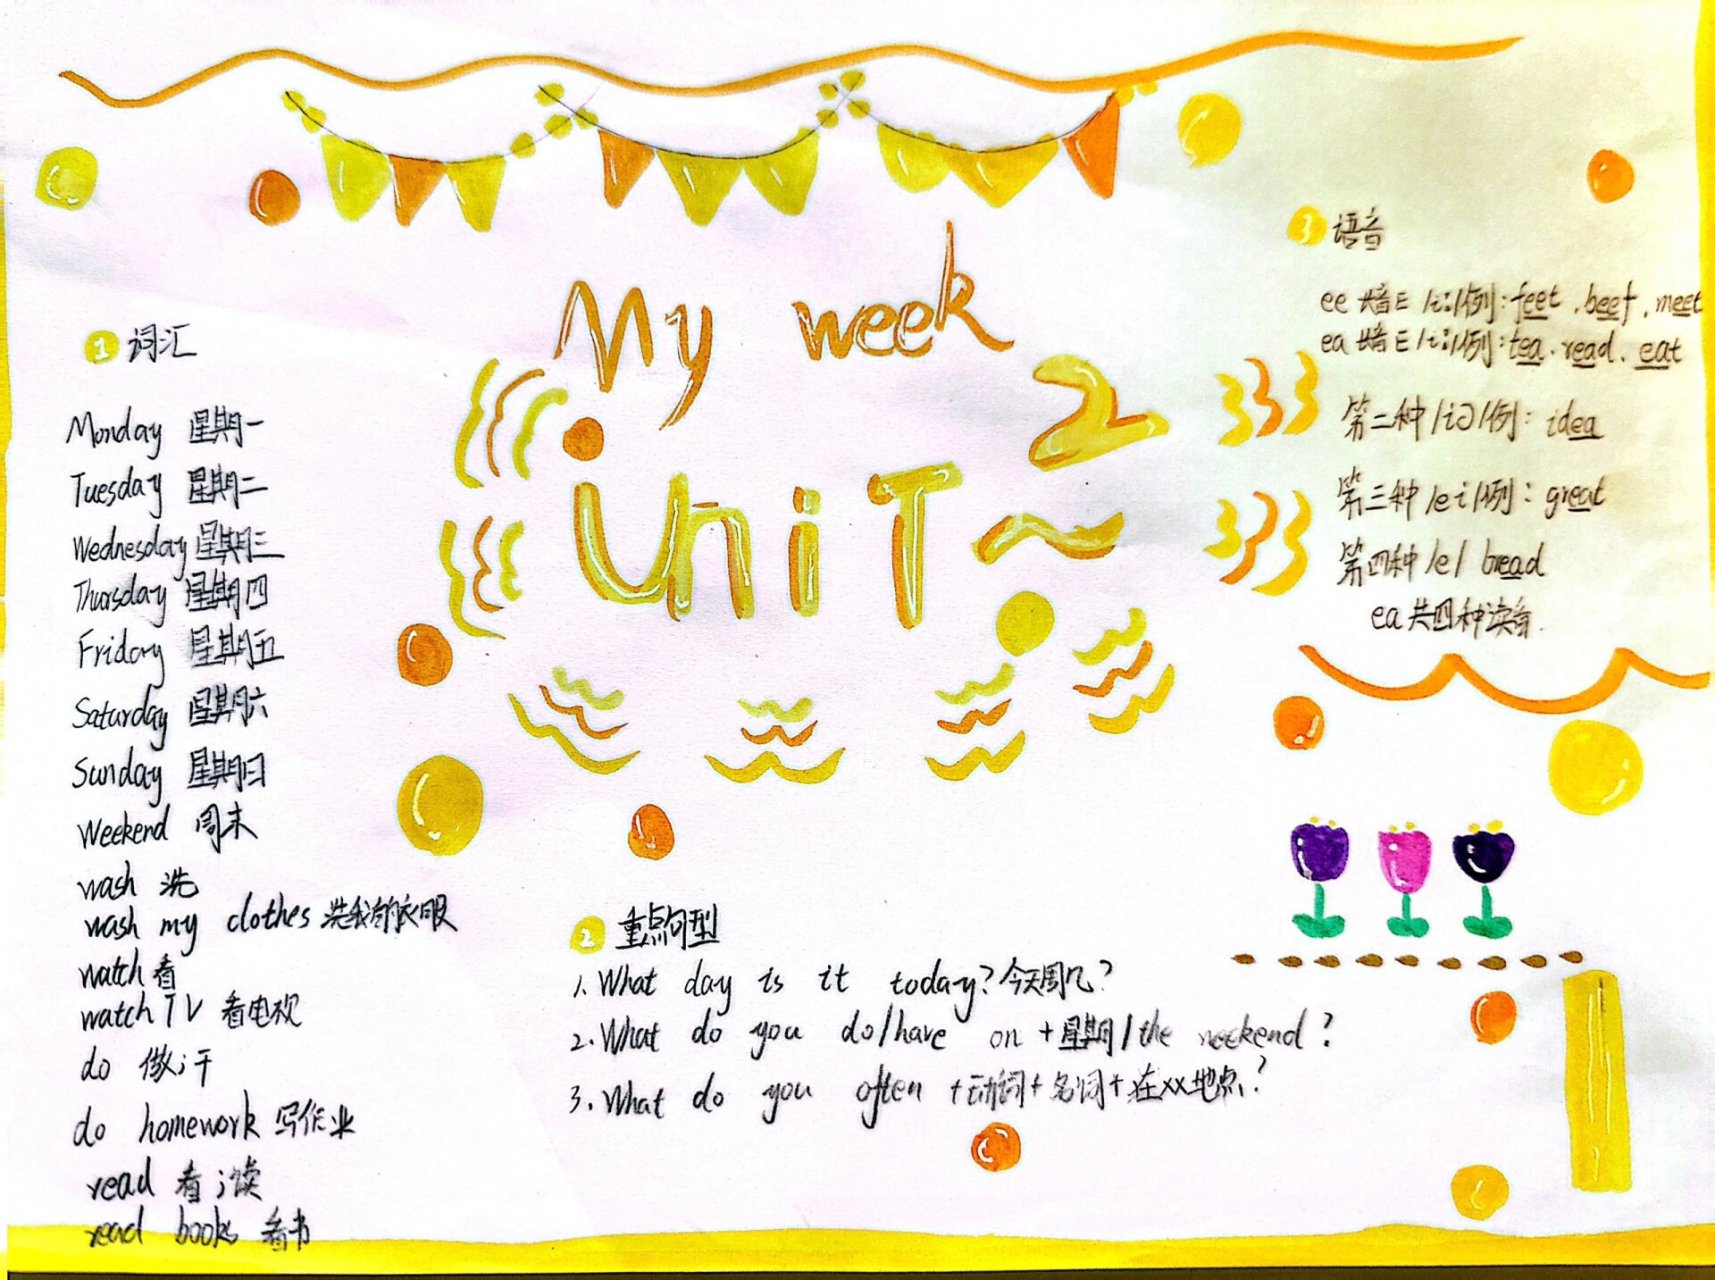 My week
2
UniT
1 词汇
Monday 星期一
Tuesday 星期二
Wednesday 星期三
Thursday 星期四
Friday 星期五
Saturday 星期六
Sunday 星期日
Weekend 周末
wash 洗
wash my clothes 洗我的衣服
watch 看
watch TV 看电视
do 做;干
do homework 写作业
read 看;读
read books 看书
2 重点句型
1. What day is it today? 今天周几?
2. What do you do/have on +星期/the weekend?
3. What do you often +动词+名词+在xx地点?
3 语音
ee 发音 /i:/例: feet .beef .meet
ea 发音 /i:/例: tea. read. eat
第二种 /iə/例: idea
第三种 /ei/例: great
第四种 /e/ bread
ea 共四种读音.